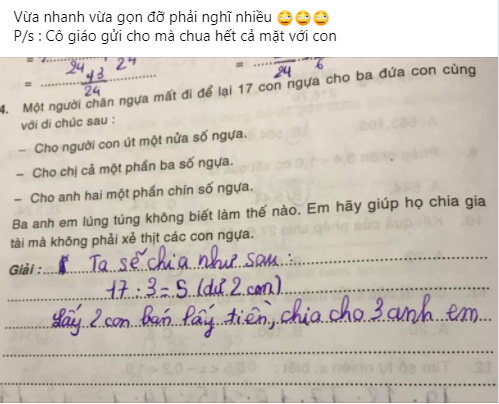 Vừa nhanh vừa gọn đỡ phải nghĩ nhiều 🙄🙄🙄
P/s : Cô giáo gửi cho mà chua hết cả mặt với con
24 24
= 43 = 6
24 24
4. Một người chăn ngựa mất đi để lại 17 con ngựa cho ba đứa con cùng
với di chúc sau :
– Cho người con út một nửa số ngựa.
– Cho chị cả một phần ba số ngựa.
– Cho anh hai một phần chín số ngựa.
Ba anh em lúng túng không biết làm thế nào. Em hãy giúp họ chia gia
tài mà không phải xẻ thịt các con ngựa.
Giải : Ta sẽ chia như sau :
17 : 3 = 5 (dư 2 con)
Lấy 2 con bán lấy tiền, chia cho 3 anh em